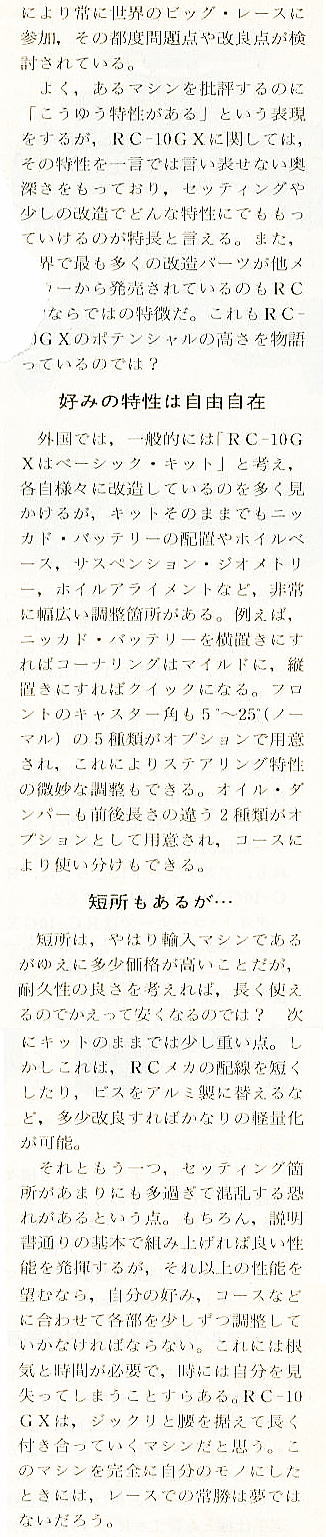 により常に世界のビッグ・レースに
参加，その都度問題点や改良点が検
討されている。
　よく，あるマシンを批評するのに
「こうゆう特性がある」という表現
をするが，ＲＣ-10ＧＸに関しては，
その特性を一言では言い表せない奥
深さをもっており，セッティングや
少しの改造でどんな特性にでももっ
ていけるのが特長と言える。また，
界で最も多くの改造パーツが他メ
ーから発売されているのもＲＣ
ならではの特徴だ。これもＲＣ-
0ＧＸのポテンシャルの高さを物語
っているのでは？
好みの特性は自由自在
　外国では，一般的には「ＲＣ-10Ｇ
Ｘはベーシック・キット」と考え，
各自様々に改造しているのを多く見
かけるが，キットそのままでもニッ
カド・バッテリーの配置やホイルベ
ース，サスペンション・ジオメトリ
ー，ホイルアライメントなど，非常
に幅広い調整箇所がある。例えば，
ニッカド・バッテリーを横置きにす
ればコーナリングはマイルドに，縦
置きにすればクイックになる。フロ
ントのキャスター角も５°～25°(ノー
マル）の５種類がオプションで用意
され，これによりステアリング特性
の微妙な調整もできる。オイル・ダ
ンパーも前後長さの違う２種類がオ
プションとして用意され，コースに
より使い分けもできる。
短所もあるが…
　短所は，やはり輸入マシンである
がゆえに多少価格が高いことだが，
耐久性の良さを考えれば，長く使え
るのでかえって安くなるのでは？　次
にキットのままでは少し重い点。し
かしこれは，ＲＣメカの配線を短く
したり，ビスをアルミ製に替えるな
ど，多少改良すればかなりの軽量化
が可能。
　それともう一つ，セッティング箇
所があまりにも多過ぎて混乱する恐
れがあるという点。もちろん，説明
書通りの基本で組み上げれば良い性
能を発揮するが，それ以上の性能を
望むなら，自分の好み，コースなど
に合わせて各部を少しずつ調整して
いかなければならない。これには根
気と時間が必要で，時には自分を見
失ってしまうことすらある。ＲＣ-10
ＧＸは，ジックリと腰を据えて長く
付き合っていくマシンだと思う。こ
のマシンを完全に自分のモノにした
ときには，レースでの常勝は夢では
ないだろう。